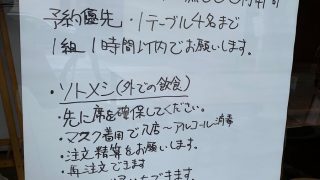 予約優先・1テーブル4名まで
1組 1時間以内でお願いします。
・ソトメシ(外での飲食)
・先に席を確保してください。
・マスク着用で入店～アルコール消毒
・注文精算をお願いします。
・再注文できます